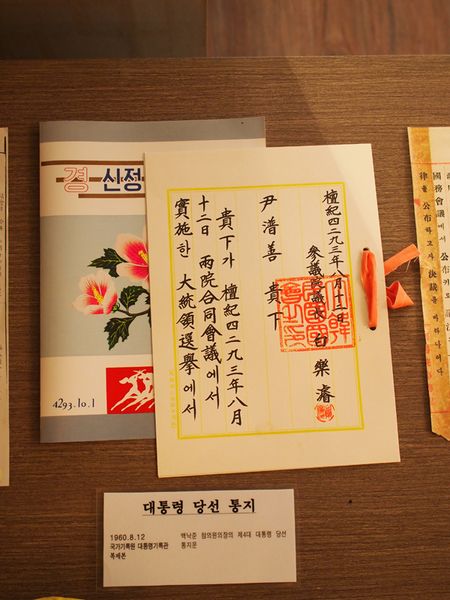 경 신정
4293.10.1
檀紀四二九三年八月十二日
參議院議長 白樂濬
尹潽善 貴下
貴下가 檀紀四二九三年八月
十二日 兩院合同會議에서
實施한 大統領選擧에서
國務會議에서
律을 公布하고자 決議를 바라나이다
대통령 당선 통지
1960.8.12 백낙준 참의원의장의 제4대 대통령 당선
국가기록원 대통령기록관 통지문
복제본